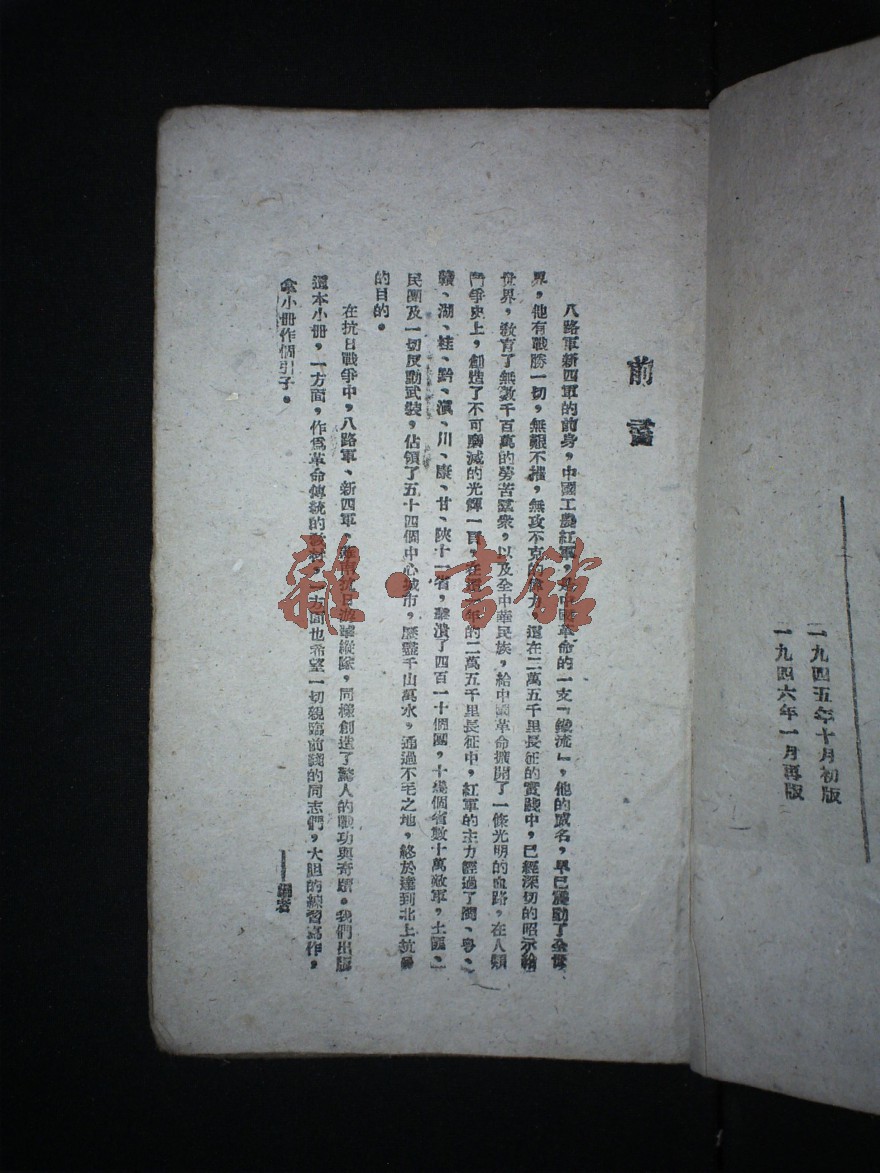 一九四五年十月初版
一九四六年一月再版
前言
八路軍新四軍的前身，中國工農紅軍，是中國革命的一支「鐵流」，他的威名，早已震動了全世
界，他有戰勝一切，無艱不摧，無攻不克的偉力，這在二萬五千里長征的實踐中，已經深切的昭示給
世界，教育了無數千百萬的勞苦羣衆，以及全中華民族，給中國革命擴開了一條光明的血路，在人類
鬥爭史上，創造了不可磨滅的光輝一頁，在這一年的二萬五千里長征中，紅軍的主力經過了閩、粵、
贛、湖、桂、黔、滇、川、康、甘、陝十一省，擊潰了四百一十個團，十幾個省數十萬敵軍，土匪、
民團及一切反動武裝，佔領了五十四個中心城市，歷盡千山萬水，通過不毛之地，終於達到北上抗日
的目的。
在抗日戰爭中，八路軍、新四軍，華南抗日游擊縱隊，同樣創造了驚人的戰功與奇蹟。我們出版
這本小册，一方面，作爲革命傳統的教材，一方面也希望一切親臨前綫的同志們，大胆的練習寫作，
拿小册作個引子。
——編者
雜·書館